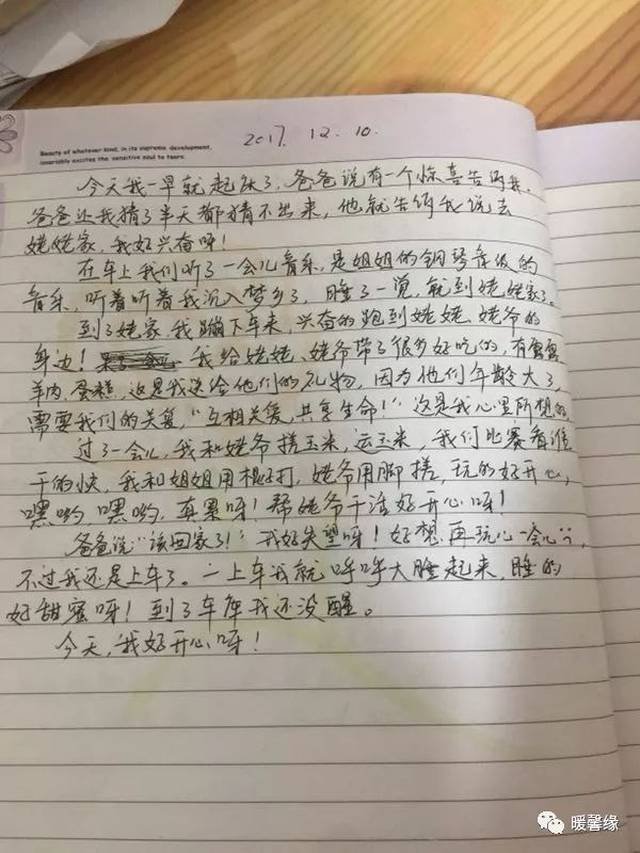 Beauty of whatever kind, in its supreme development,
invariably excites the sensitive soul to tears.
2017. 12. 10.
今天我一早就起床了，爸爸说有一个惊喜告诉我。
爸爸让我猜了半天都猜不出来，他就告诉我说去
姥姥家，我好兴奋呀！
在车上我们听了一会儿音乐，是姐姐的钢琴年级的
音乐，听着听着我沉入梦乡了，睡了一觉，就到姥姥家了。
到了姥家，我蹦下车来，兴奋的跑到姥姥、姥爷的
身边！我给姥姥、姥爷带了很多好吃的，有
羊肉，蛋糕，这是我送给他们的礼物，因为他们年龄大了，
需要我们的关爱，“互相关爱，共享生命！”这是我心里所想的。
过了一会儿，我和姥爷搓玉米，运玉米，我们比赛看谁
干的快，我和姐姐用棍子打，姥爷用脚搓，玩的好开心，
嘿哟，嘿哟，真累呀！帮姥爷干活好开心呀！
爸爸说“该回家了！”我好失望呀！好想再玩一会儿，
不过我还是上车了。一上车我就呼呼大睡起来，睡的
好甜蜜呀！到了车库我还没醒。
今天，我好开心呀！
暖馨缘